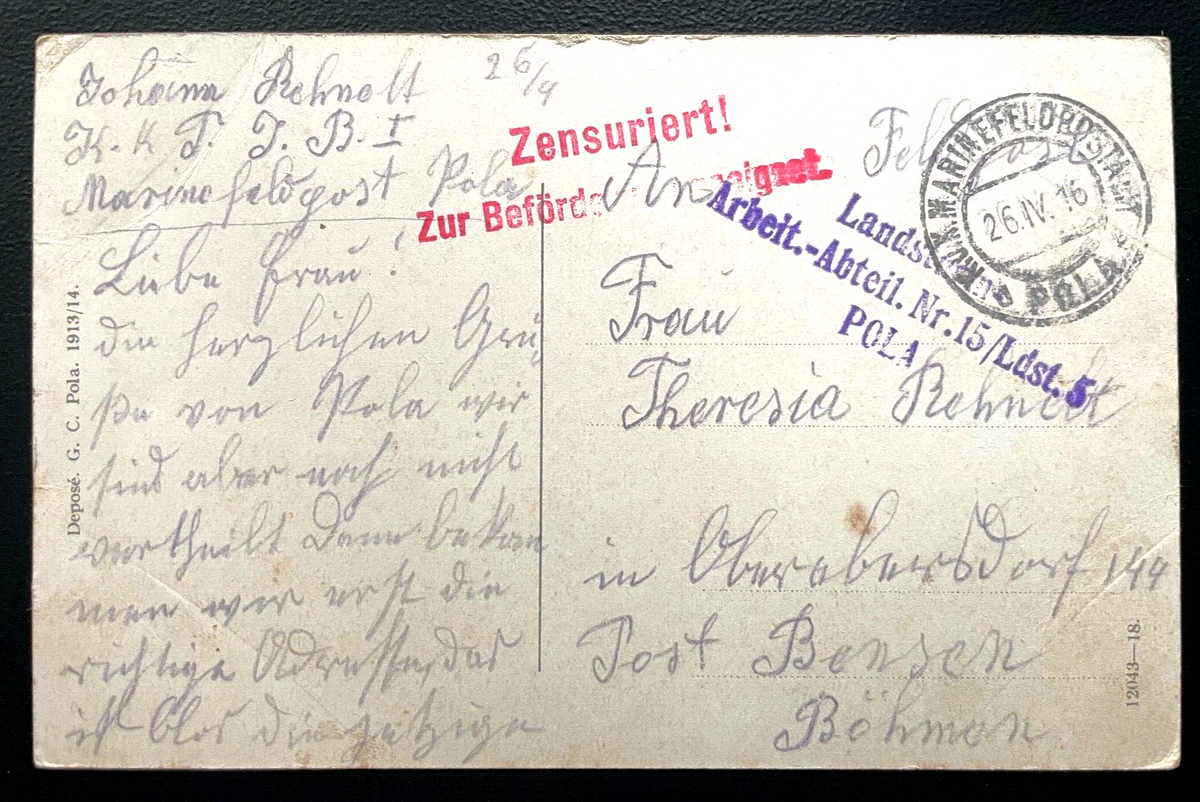 Johann Rehnelt 26/4
K. k. T. J. B. I
Marinefeldpost Pola
Liebe Frau!
die herzlichen Grü-
ße von Pola wir
sind aber noch nicht
vertheilt dann bekom
men wir erst die
richtige Adresse, das
ist blos die jetzige
Deposé. G. C. Pola. 1913/14.
Zensuriert!
Zur Beförde geeignet.
Feldpost
K.u.K. MARINEFELDPOSTAMT
26.IV.16
POLA
Landsturm
Arbeit.-Abteil. Nr.15/Ldst. 5
POLA
An
Frau
Theresia Rehnelt
in Oberebersdorf 144
Post Bensen
Böhmen
12043—18.